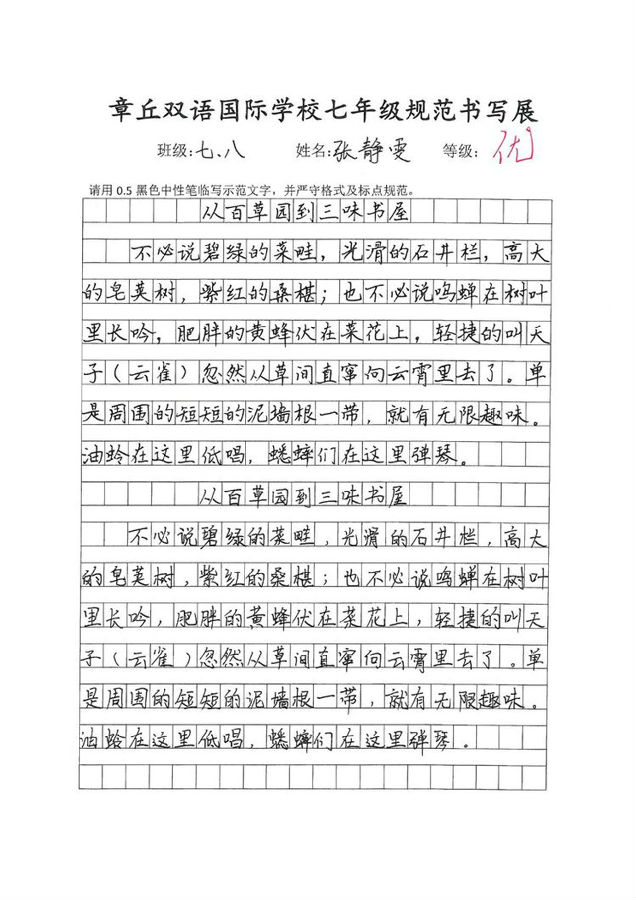 章丘双语国际学校七年级规范书写展
班级:七.八 姓名:张静雯 等级:优
请用 0.5 黑色中性笔临写示范文字，并严守格式及标点规范。
从百草园到三味书屋
不必说碧绿的菜畦，光滑的石井栏，高大
的皂荚树，紫红的桑椹；也不必说鸣蝉在树叶
里长吟，肥胖的黄蜂伏在菜花上，轻捷的叫天
子（云雀）忽然从草间直窜向云霄里去了。单
是周围的短短的泥墙根一带，就有无限趣味。
油蛉在这里低唱，蟋蟀们在这里弹琴。
从百草园到三味书屋
不必说碧绿的菜畦，光滑的石井栏，高大
的皂荚树，紫红的桑椹；也不必说鸣蝉在树叶
里长吟，肥胖的黄蜂伏在菜花上，轻捷的叫天
子（云雀）忽然从草间直窜向云霄里去了。单
是周围的短短的泥墙根一带，就有无限趣味。
油蛉在这里低唱，蟋蟀们在这里弹琴。